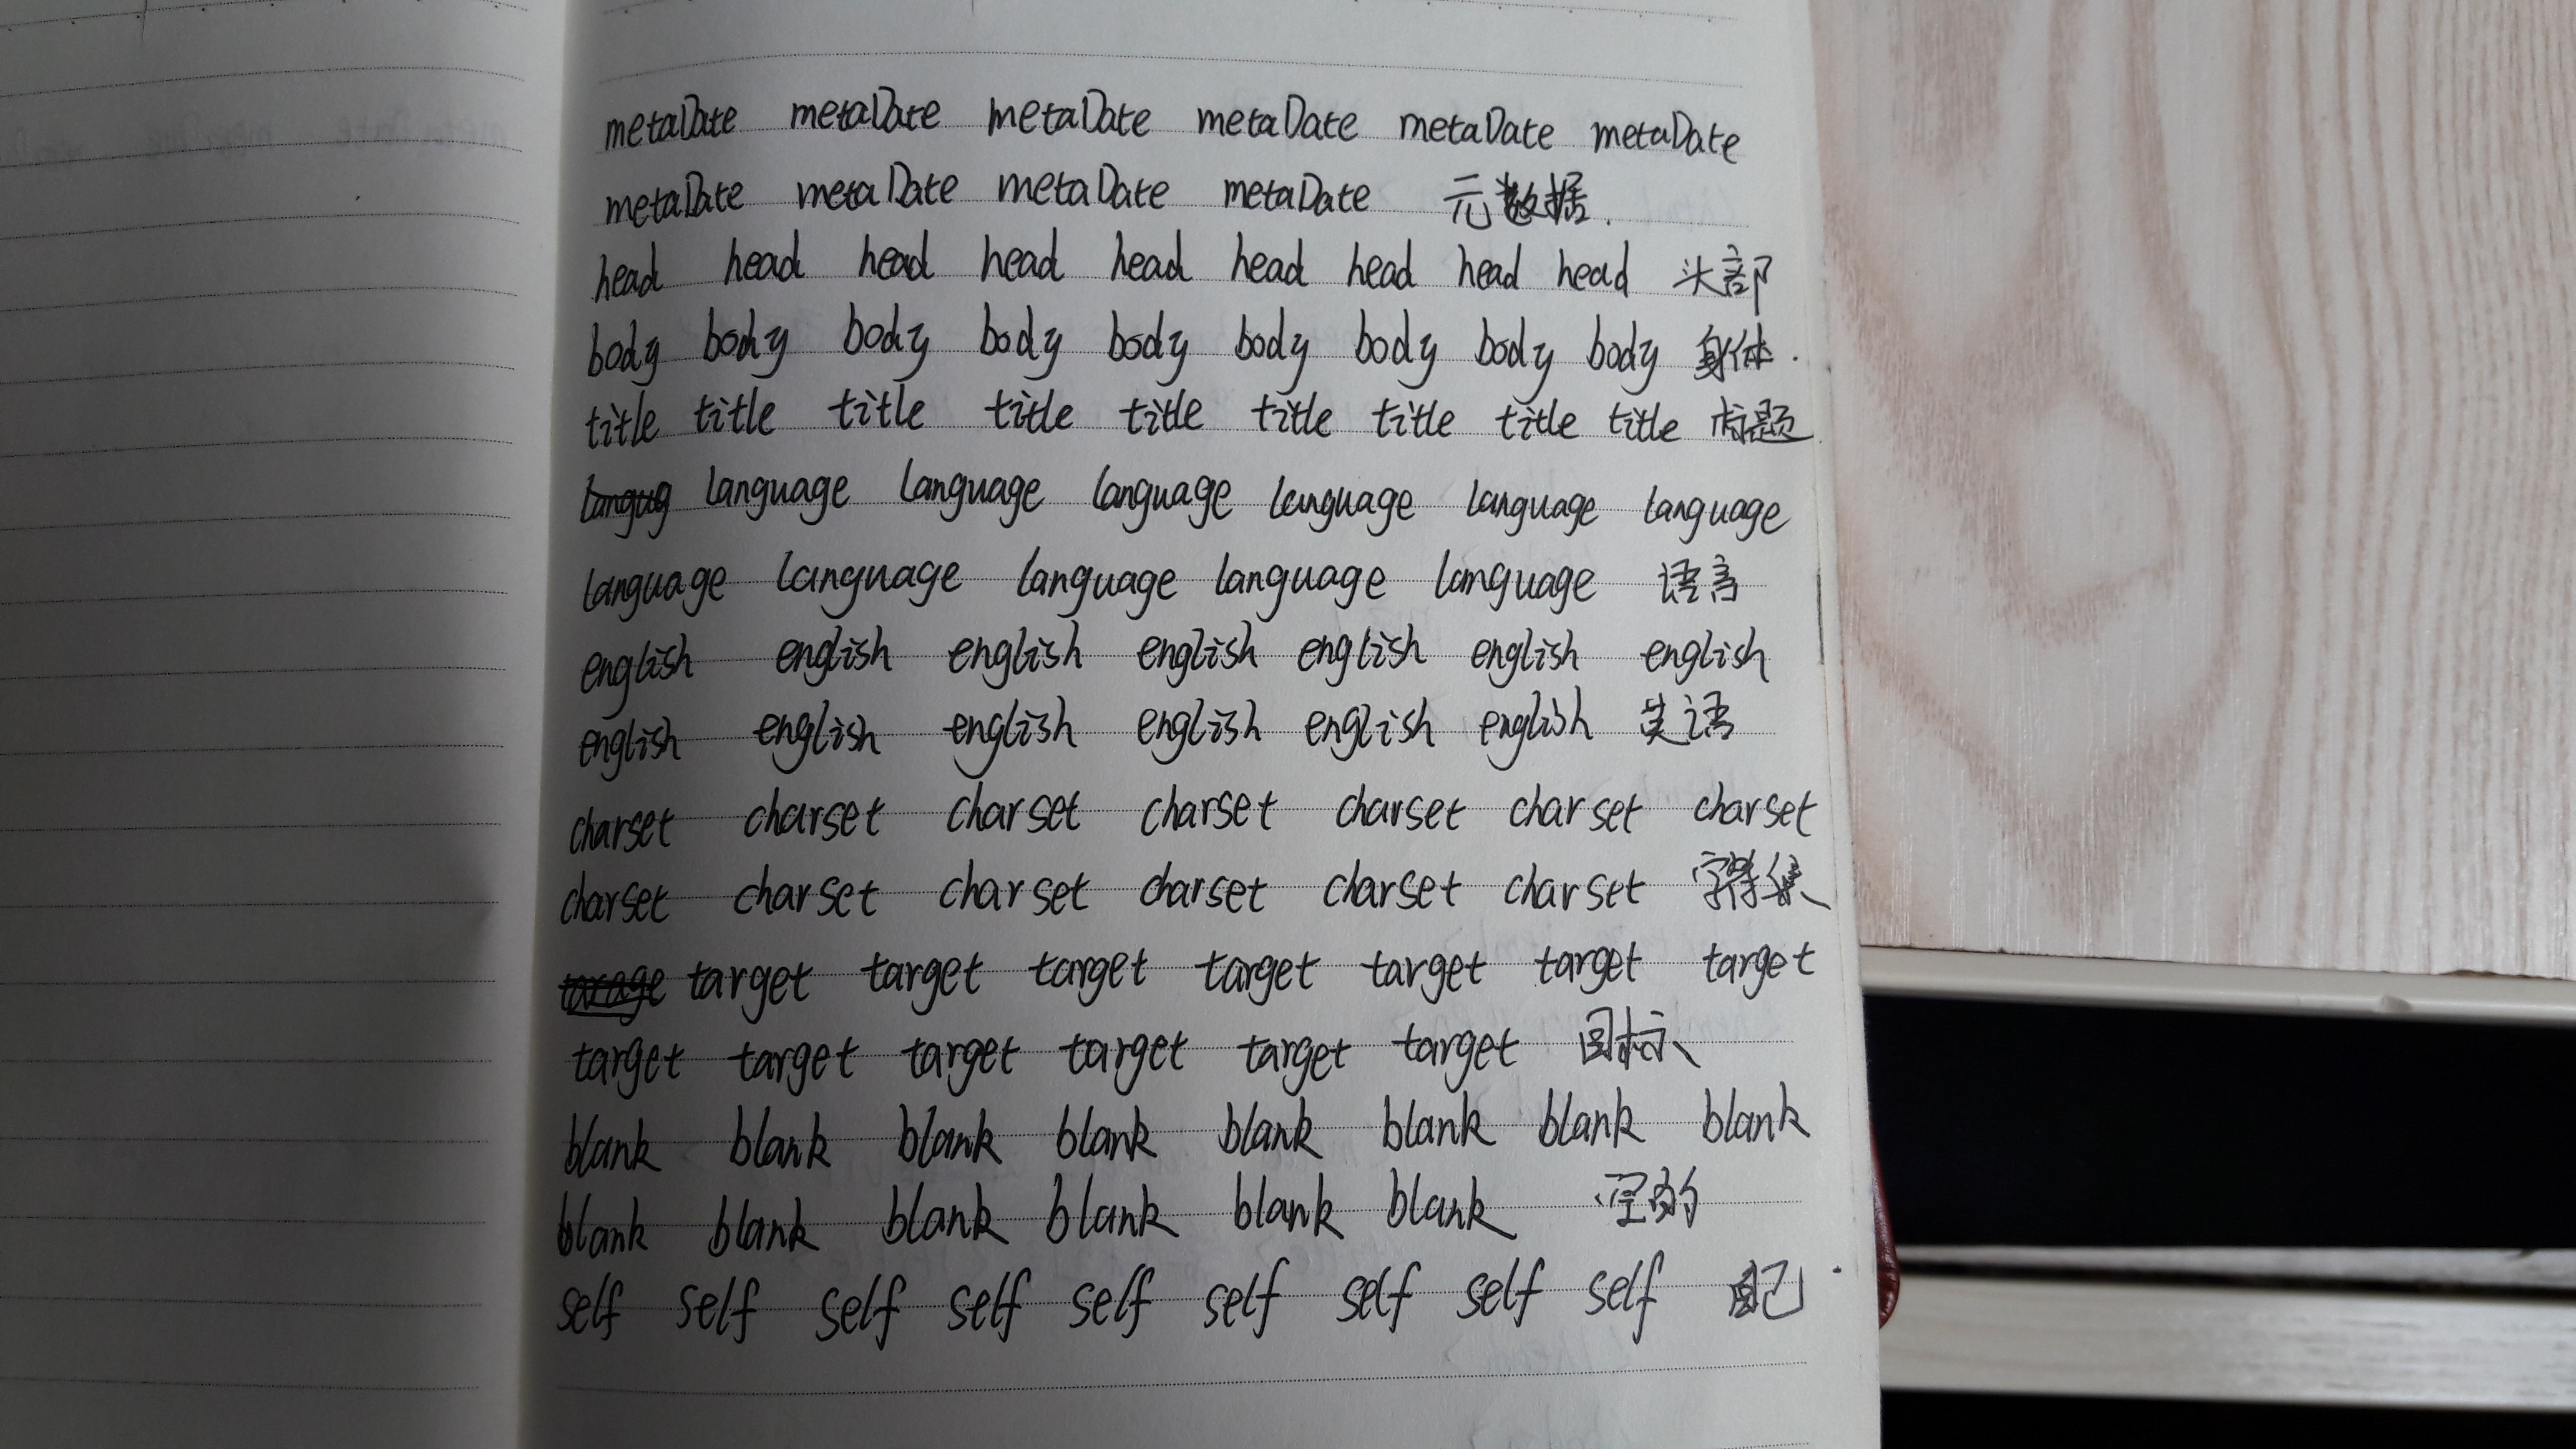 metaDate metaDate metaDate metaDate metaDate metaDate
metaDate metaDate metaDate metaDate 元数据.
head head head head head head head head head 头部
body body body body body body body body body 身体.
title title title title title title title title title 标题
langug language language language language language language
language language language language language 语言
english english english english english english english
english english english english english english 英语
charset charset charset charset charset charset charset
charset charset charset charset charset charset 字符集
target target target target target target target
target target target target target target 目标
blank blank blank blank blank blank blank blank
blank blank blank blank blank blank 空的
self self self self self self self self self 自己